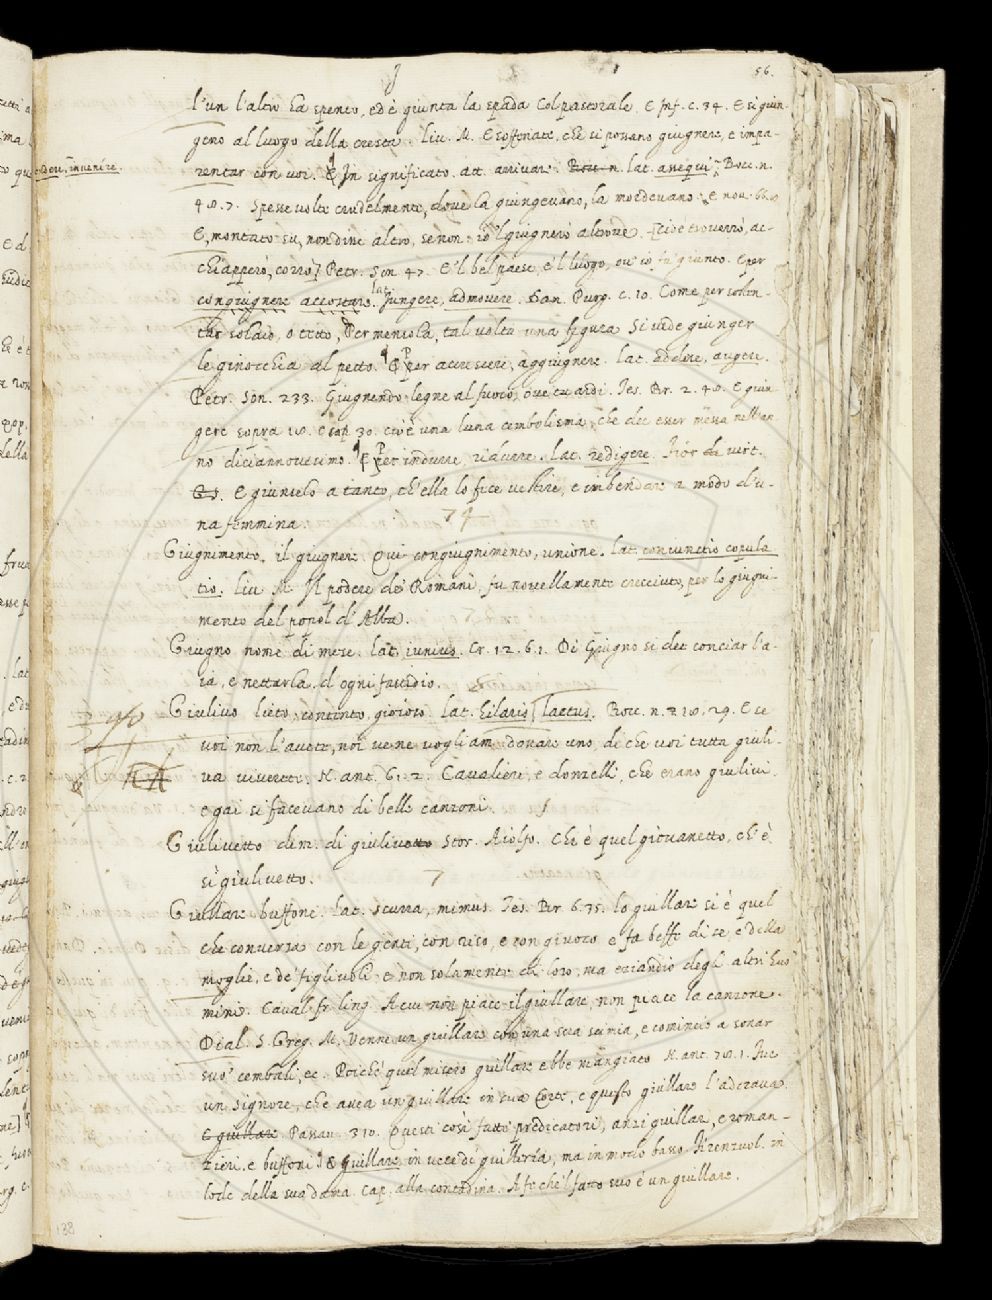 56.
l'un l'altro ha spento, ed è giunta la spada Col pastorale. E Inf. c. 34. E si giun-
geno al luogo della cresta. Liv. M. E soffenate, che si possano giugnere, e impa-
rentar con voi. In significato. att. arrivare. Bocc. n. lat. assequi, Bocc. n.
invenire.
48. 7. Spesse volte crudelmente, dove la giungevano, la mordevano. E nov. 66.
E, montato su, non dire altro, se non: io 'l giugnerò altrove. [cioè troverrò, ac-
chiapperò, corrò] Petr. Son. 47. E 'l bel paese, e 'l luogo, ov' io fu' giunto. E per
congiugnere accostare. lat. Jungere, admovere. Dan. Purg. c. 10. Come per sosten-
tar solaio, o tetto, Per mensola, tal volta una figura Si vede giunger
le ginocchia al petto. E Per accrescere, aggiugnere. lat. addere, augere.
Petr. Son. 233. Giugnendo legne al fuoco, ove tu ardi. Tes. Br. 2. 48. E giun-
gere sopra 18. E cap. 30. cioè una luna embolisma, che dee esser messa nell' an-
no diciannovesimo. E Per indurre, ridurre. lat. redigere. Fior di virt.
E giunselo a tanto, ch' ella lo fece vestire, e imbendare a modo d' u-
na femmina. 74
Giugnimento. il giugnere. Qui congiugnimento, unione. lat. coniunctio copula
tio. Liv. M. Il podere de' Romani, fu novellamente cresciuto, per lo giugni-
mento del popol d' Alba.
Giugno nome di mese. lat. iunius. Cr. 12. 6. 1. Di Giugno si dee conciar l' a-
ia, e nettarla d' ogni fastidio.
Giulivo lieto, contento, gioioso. lat. hilaris, laetus. Bocc. n. 28. 29. E se
voi non l' avete, noi ve ne vogliam donare uno, di che voi tutta giuli-
va viverete. N. ant. 61. 2. Cavalieri, e donzelli, che erano giulivi,
e gai si facevano di belle canzoni. 1
Giulivetto dim. di giulivo Stor. Aiolfo. Chi è quel giovanetto, ch' è
sì giulivetto. 7
Giullare buffone. lat. scurra, mimus. Tes. Br. 6. 35. lo giullare si è quel
che conversa con le genti, con riso, e con giuoco e fa beffe di se, e della
moglie, e de' figliuoli: e non solamente di loro, ma eziandio degli altri huo
mini. Caval. fr. ling. A cui non piace il giullare, non piace la canzone.
Dial. S. Greg. M. Venne un giullare con una sua scimia, e cominciò a sonar
suo' cembali, ec. Poichè quel misero giullare ebbe mangiato N. ant. 78. 1. Fue
un signore, che avea un giullare in sua Corte, e questo giullare l' adorava.
E giullare Passav. 310. Questi così fatti predicatori, anzi giullari, e roman-
zieri, e buffoni E Giullare in vece di giulleria, ma in modo basso Firenzuol. in
lode della sua dama. Cap. alla contadina. A fe che 'l fatto suo è un giullare.
138